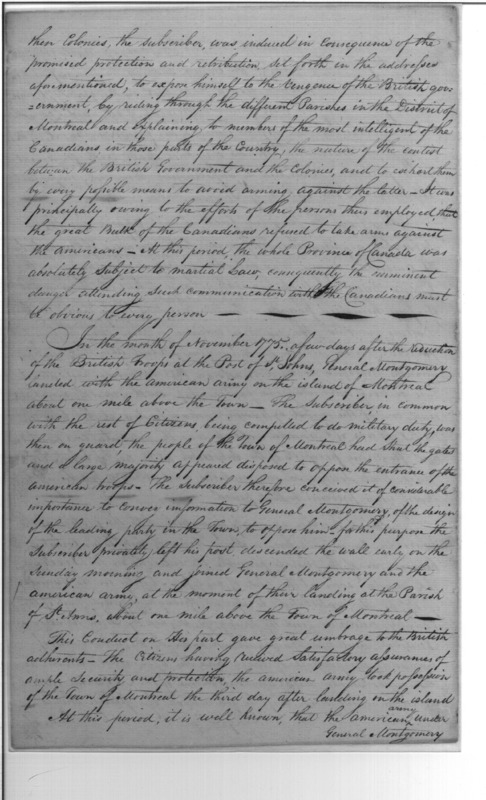 then Colonies, the subscriber, was induced in consequence of the
promised protection and retribution, set forth in the addresses
aforementioned, to expose himself to the vengence of the British gov-
=ernment, by riding through the different Parishes in the District of
Montreal and explaining, to members of the most intelligent of the
Canadians in those parts of the Country, the nature of the contest
between the British Government and the Colonies, and to exhort them
by every possible means to avoid arming against the latter — It was
principally owing to the efforts of the persons thus employed that
the great Bulk of the Canadians refused to take arms against
the americans — At this period the whole Province of Canada was
absolutely subject to martial Law, consequently the imminent
danger attending such communication with the Canadians must
be obvious to every person — — — — —
In the month of November 1775, a few days after the reduction
of the British Troops at the Post of St. Johns, General Montgomery
landed with the american army on the island of Montreal
about one mile above the town — The Subscriber, in common
with the rest of Citizens, being compelled to do military duty, was
then on guard, the people of the Town of Montreal had shut the gates
and a large majority appeared disposed to oppose the entrance of the
american troops — The Subscriber therefore conceived it of considerable
importance to convey information to General Montgomery, of the design
of the leading party in the Town, to oppose him — for this purpose the
Subscriber privately left his post, descended the wall early on the
Sunday morning and joined General Montgomery and the
american army, at the moment of their landing at the Parish
of St. Anns, about one mile above the Town of Montreal —
This Conduct on His part gave great umbrage to the British
adherents — The Citizens having received Satisfactory assurances of
ample Security and protection, the american army took possession
of the Town of Montreal the third day after landing on the island
At this period, it is well known, that the american army under
General Montgomery